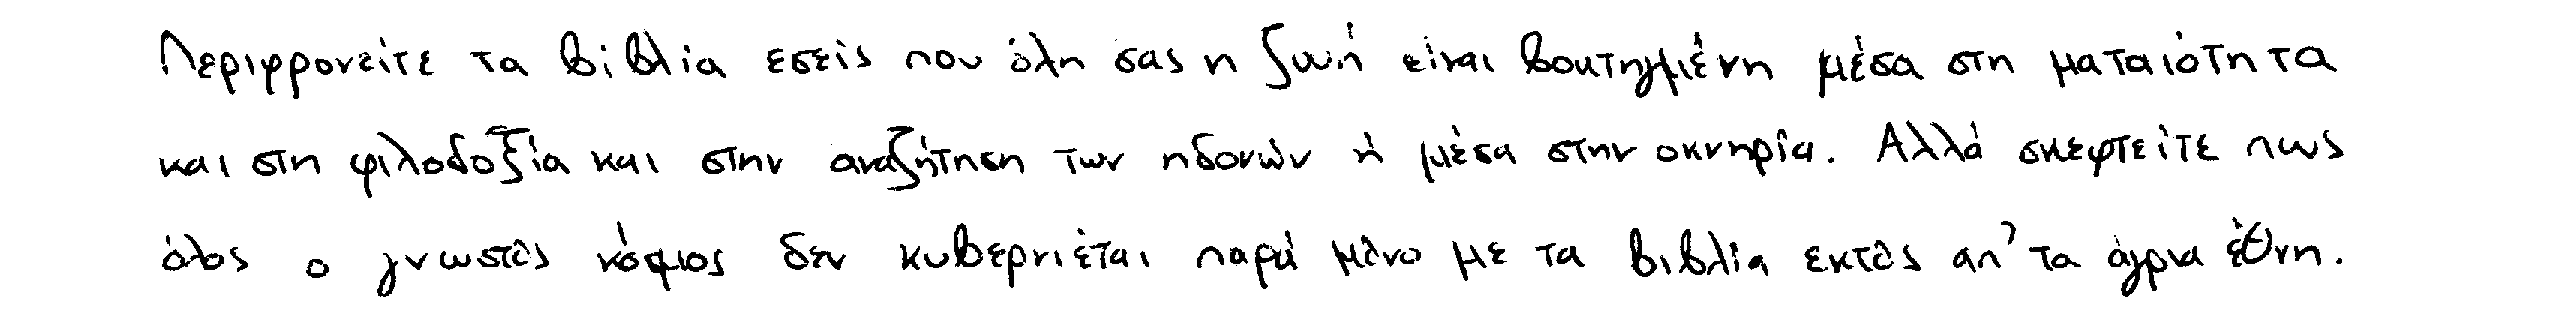 Περιφρονείτε τα βιβλία εσείς που όλη σας η ζωή είναι βουτηγμένη μέσα στη ματαιότητα
και στη φιλοδοξία και στην αναζήτηση των ηδονών ή μέσα στην οκνηρία. Αλλά σκεφτείτε πως
όλος ο γνωστός κόσμος δεν κυβερνιέται παρά μόνο με τα βιβλία εκτός απ' τα άγρια έθνη.